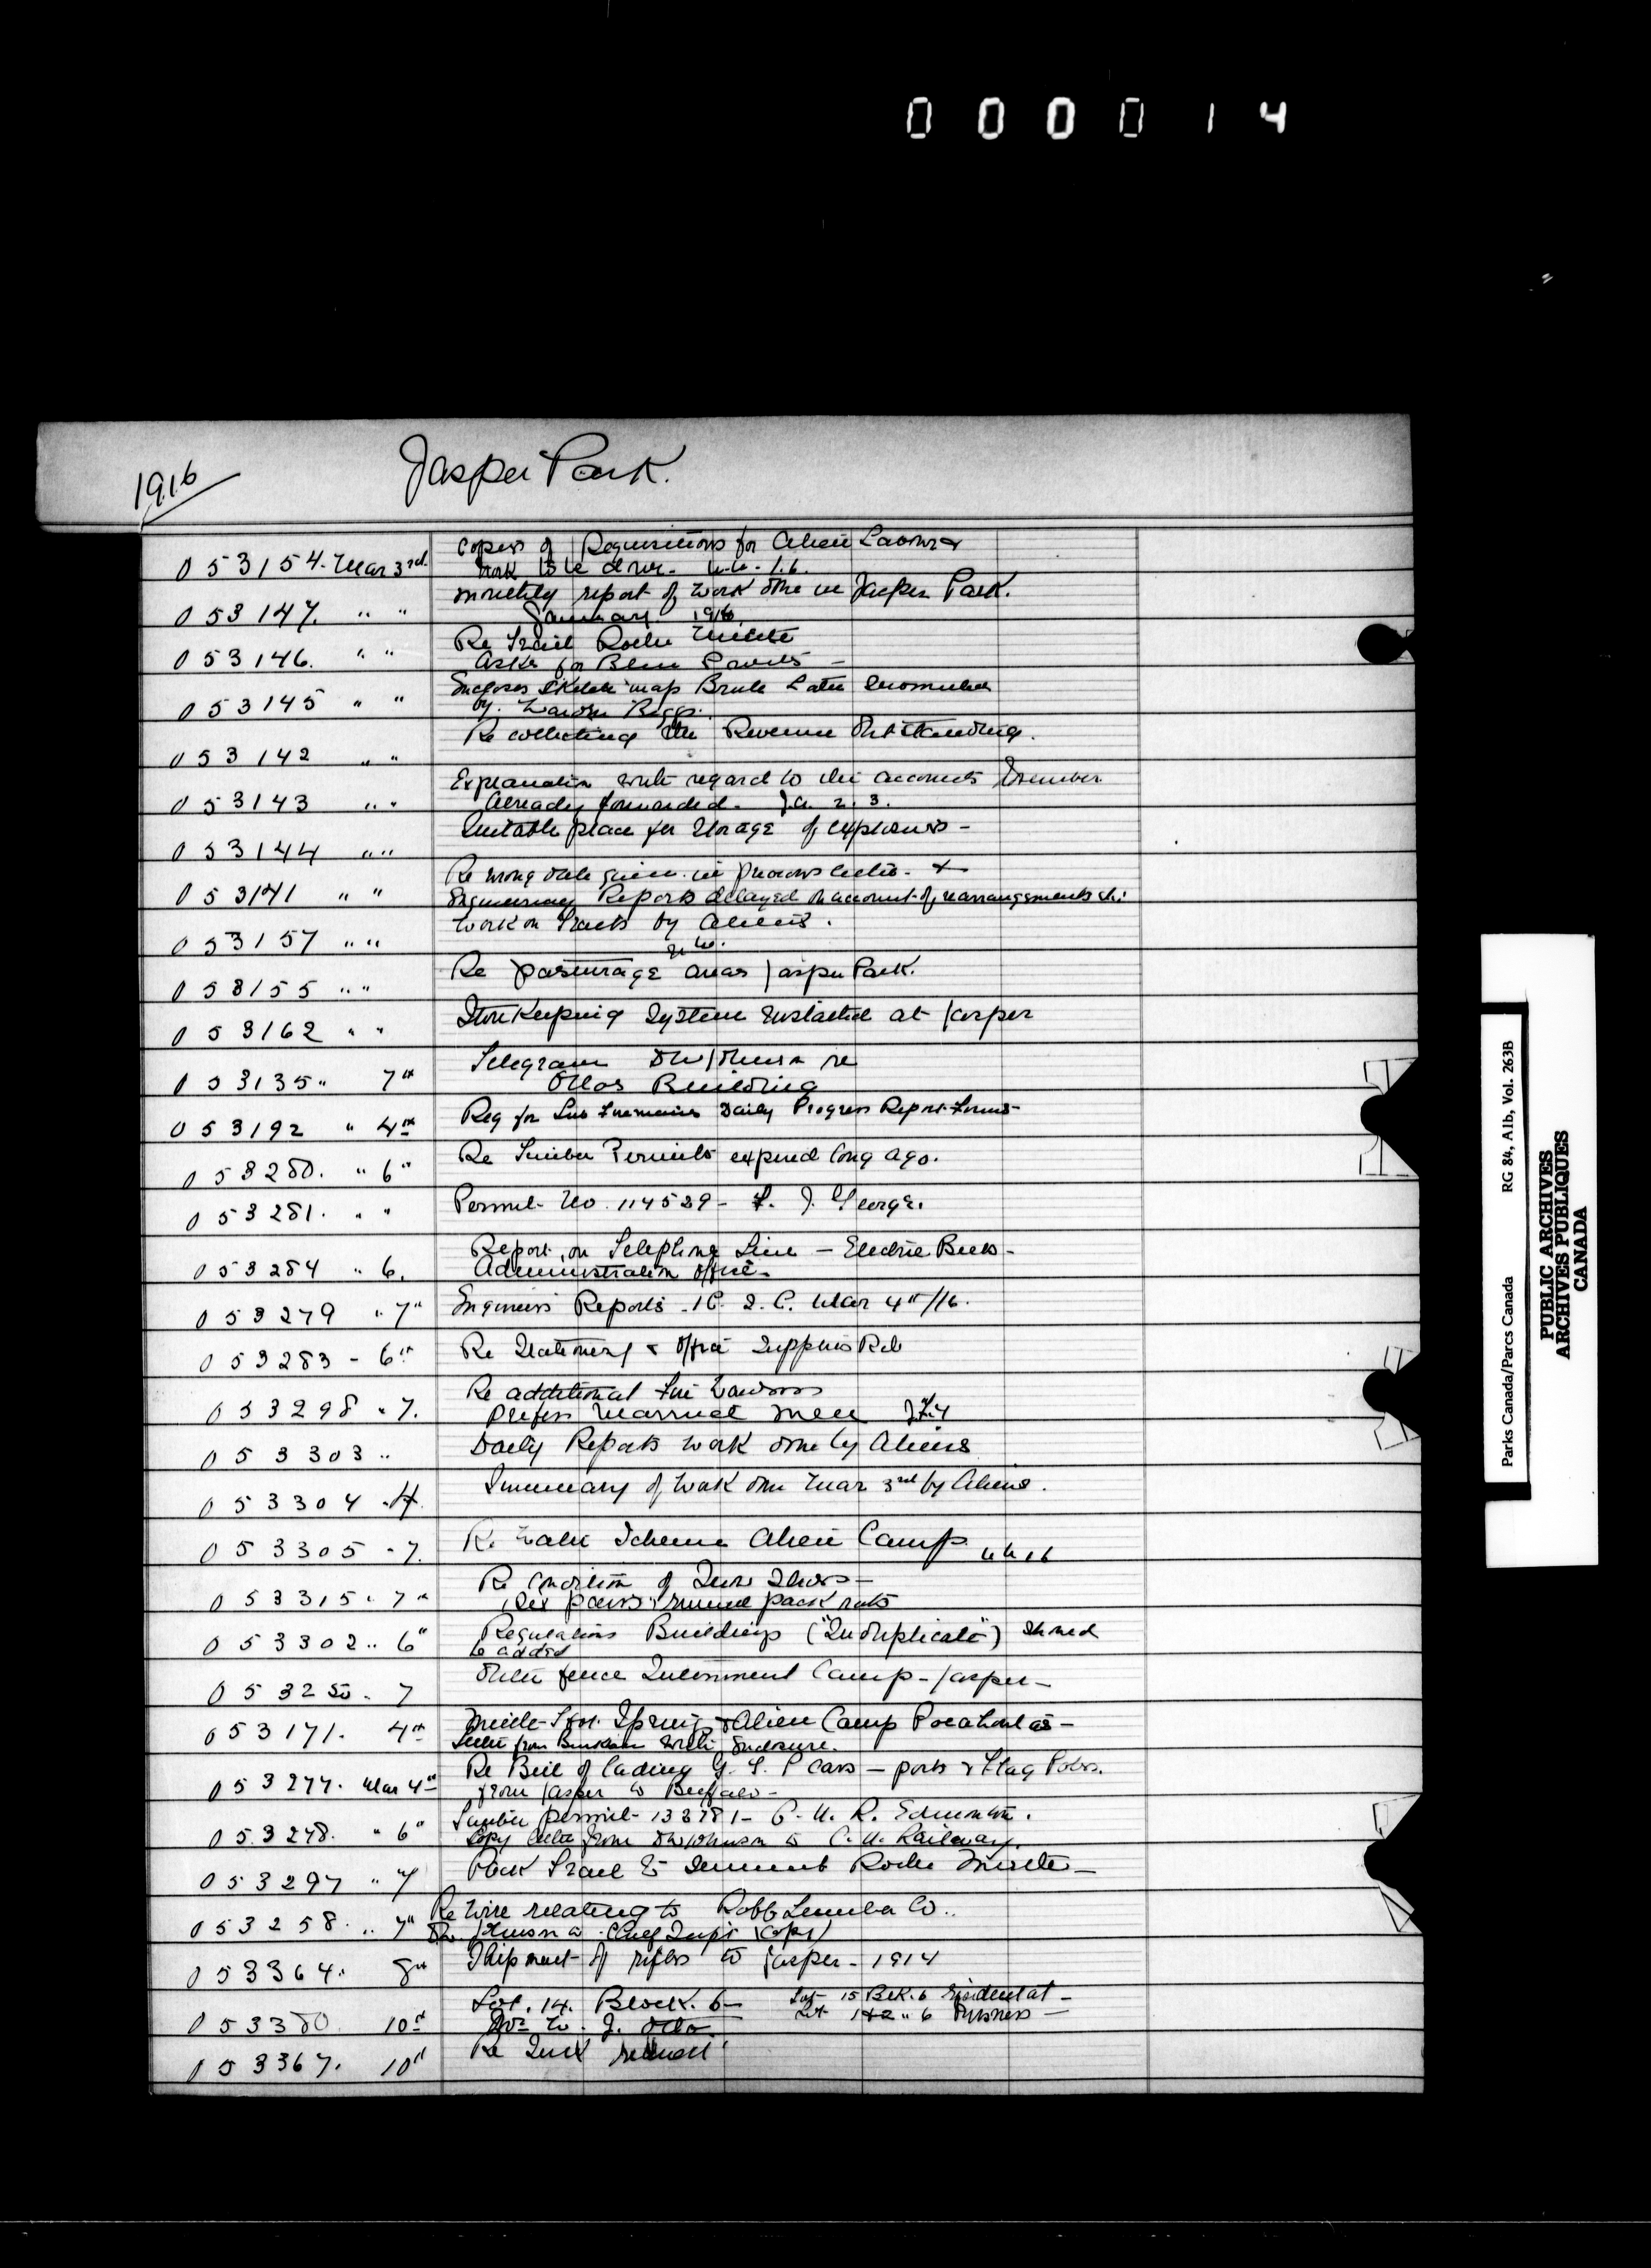 000014
1916
Jasper Park.
053154. Mar 3rd. Copies of Requisitions for Alien Labour &
work to be done.
053147. " " Monthly report of work done in Jasper Park.
January 1916
053146. " " Re Trail Roche Miette
Asks for Blue Prints -
053145 " " Encloses sketch map Brule Lake
by Warden Biggs.
053142 " " Re collecting the Revenue Outstanding.
053143 " " Explanation with regard to the accounts December
Already forwarded. J.A. 2. 3.
053144 " " Suitable place for Storage of explosives -
053141 " " Re wrong date given in previous letter. &
Engineering Reports delayed on account of rearrangements
053157 " " Work on Tracts by Aliens.
053155 " " Re pasturage areas Jasper Park.
053162 " " Store Keeping System Installed at Jasper
053135 " 7th Telegram re
Ottos Building
053192 " 4th Req for Sub Foremains Daily Progress Report Forms -
053280. " 6" Re Timber Permits expired long ago.
053281. " " Permit No. 114529 - F. J. George.
053284 " 6. Report on Telephone Line - Electric Bells -
Administration Office -
053279 " 7" Engineers Reports - Mar 4"/16.
053283 - 6th Re Stationery & Office Supplies
053298 " 7. Re additional Fire Wardens
prefers Married men
053303 " Daily Reports work done by Aliens
053304 Summary of Work done Mar 3rd by Aliens.
053305 - 7. Re Water Scheme Alien Camp
053315 " 7" Re Condition of Snow Shoes -
Six pairs ruined pack rats
053302 " 6" Regulations Buildings ("In duplicate")
to added
053250 - 7 fence Internment Camp - Jasper -
053171. 4th Miette Hot Spring & Alien Camp Pocahontas -
Letter from with Enclosure.
053277. Mar 4th Re Bill of lading G. T. P cars - posts & Flag Poles.
from Jasper to Buffalo -
053278. " 6" Timber permit - 133781 - C. N. R. Edmonton.
Copy letter from to C. N. Railway.
053297 " 7 Pack Trail to Summit Roche Miette -
053258. " 7" Re Wire relating to Robb Lumber Co..
to Chief Supt (Copy)
053364. 8th Shipment of rifles to Jasper - 1914
053380 10th Lot. 14. Block. 6 - Lot 15 Blk. 6 residential -
Lot 1&2 " 6 Business -
W. J. Otto
053367. 10" Re
Parks Canada/Parcs Canada RG 84, Alb, Vol. 263B
PUBLIC ARCHIVES
ARCHIVES PUBLIQUES
CANADA